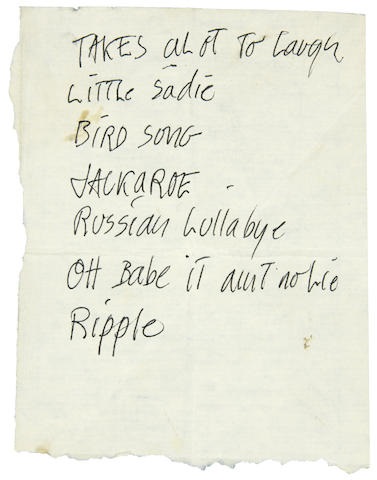 TAKES alot To Laugh
Little Sadie
BIRD SONG
JACKAROE
RUSSIAN Lullabye
OH Babe it aint no Lie
Ripple